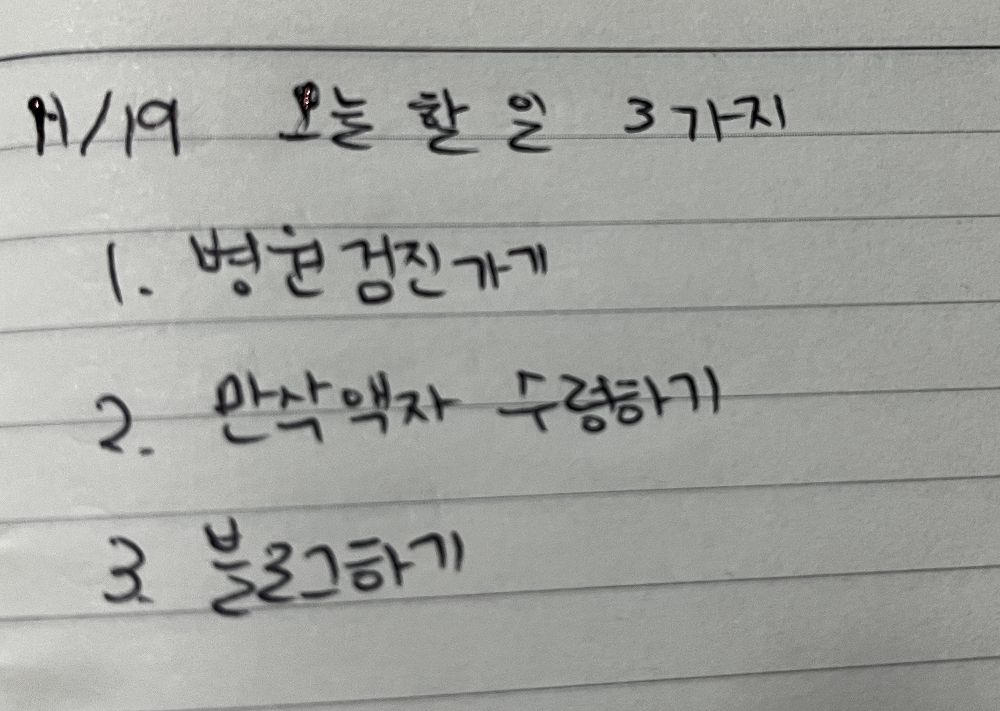 11/19 오늘 할 일 3가지
1. 병원검진가기
2. 만삭액자 수령하기
3. 블로그하기